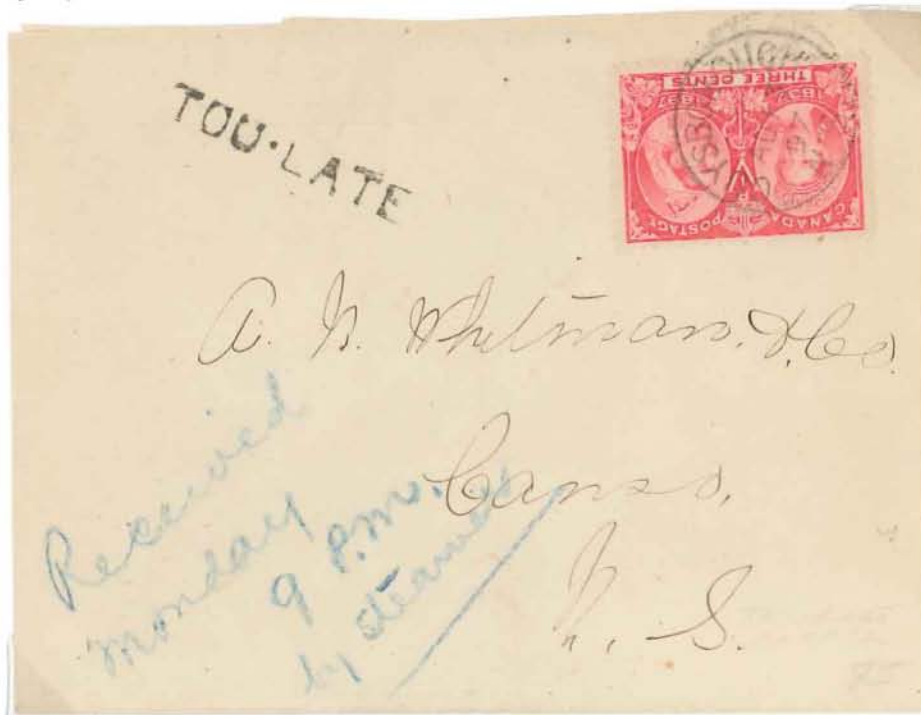 TOO·LATE
THREE CENTS
1837 1897
CANADA POSTAGE
A. N. Whitman & Co.
Canso,
N. S.
Received
Monday
9 P.M.
by steamer